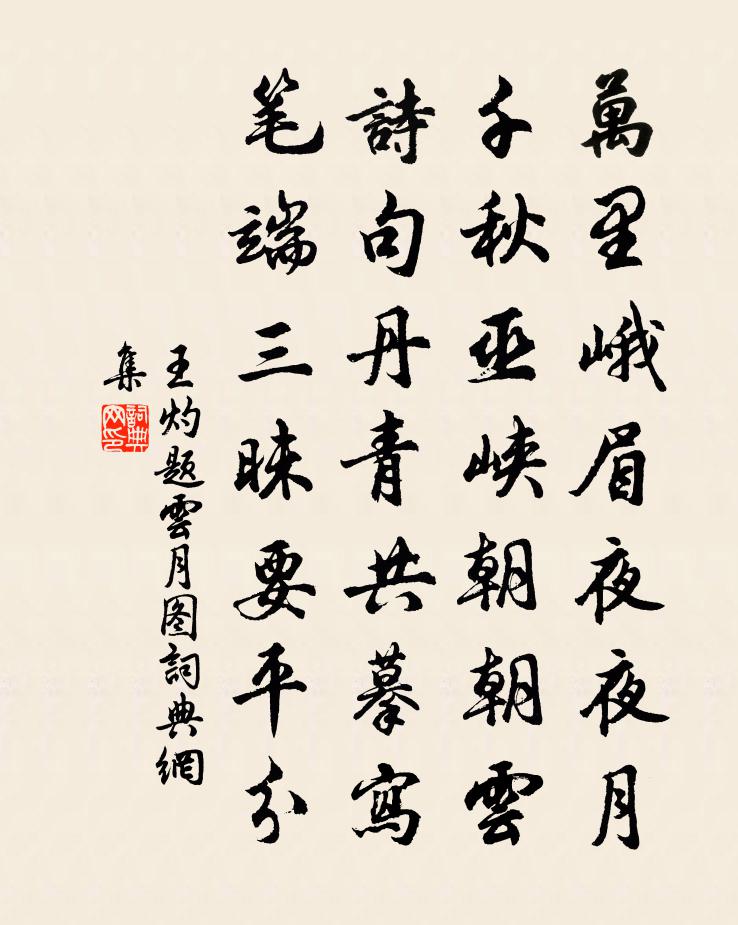 萬里峨眉夜夜月
千秋巫峽朝朝雲
詩句丹青共摹寫
笔端三昧要平分
王灼题雲月图詞典網
集
詞典
网印